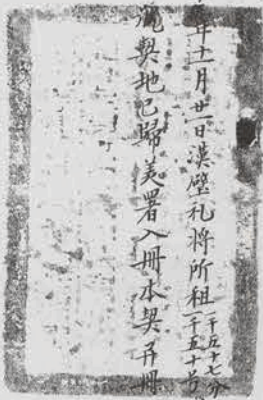 年十一月廿一日漢壁礼將所租
一千五十七分
一千五十号
契地已歸美署入冊本契冊